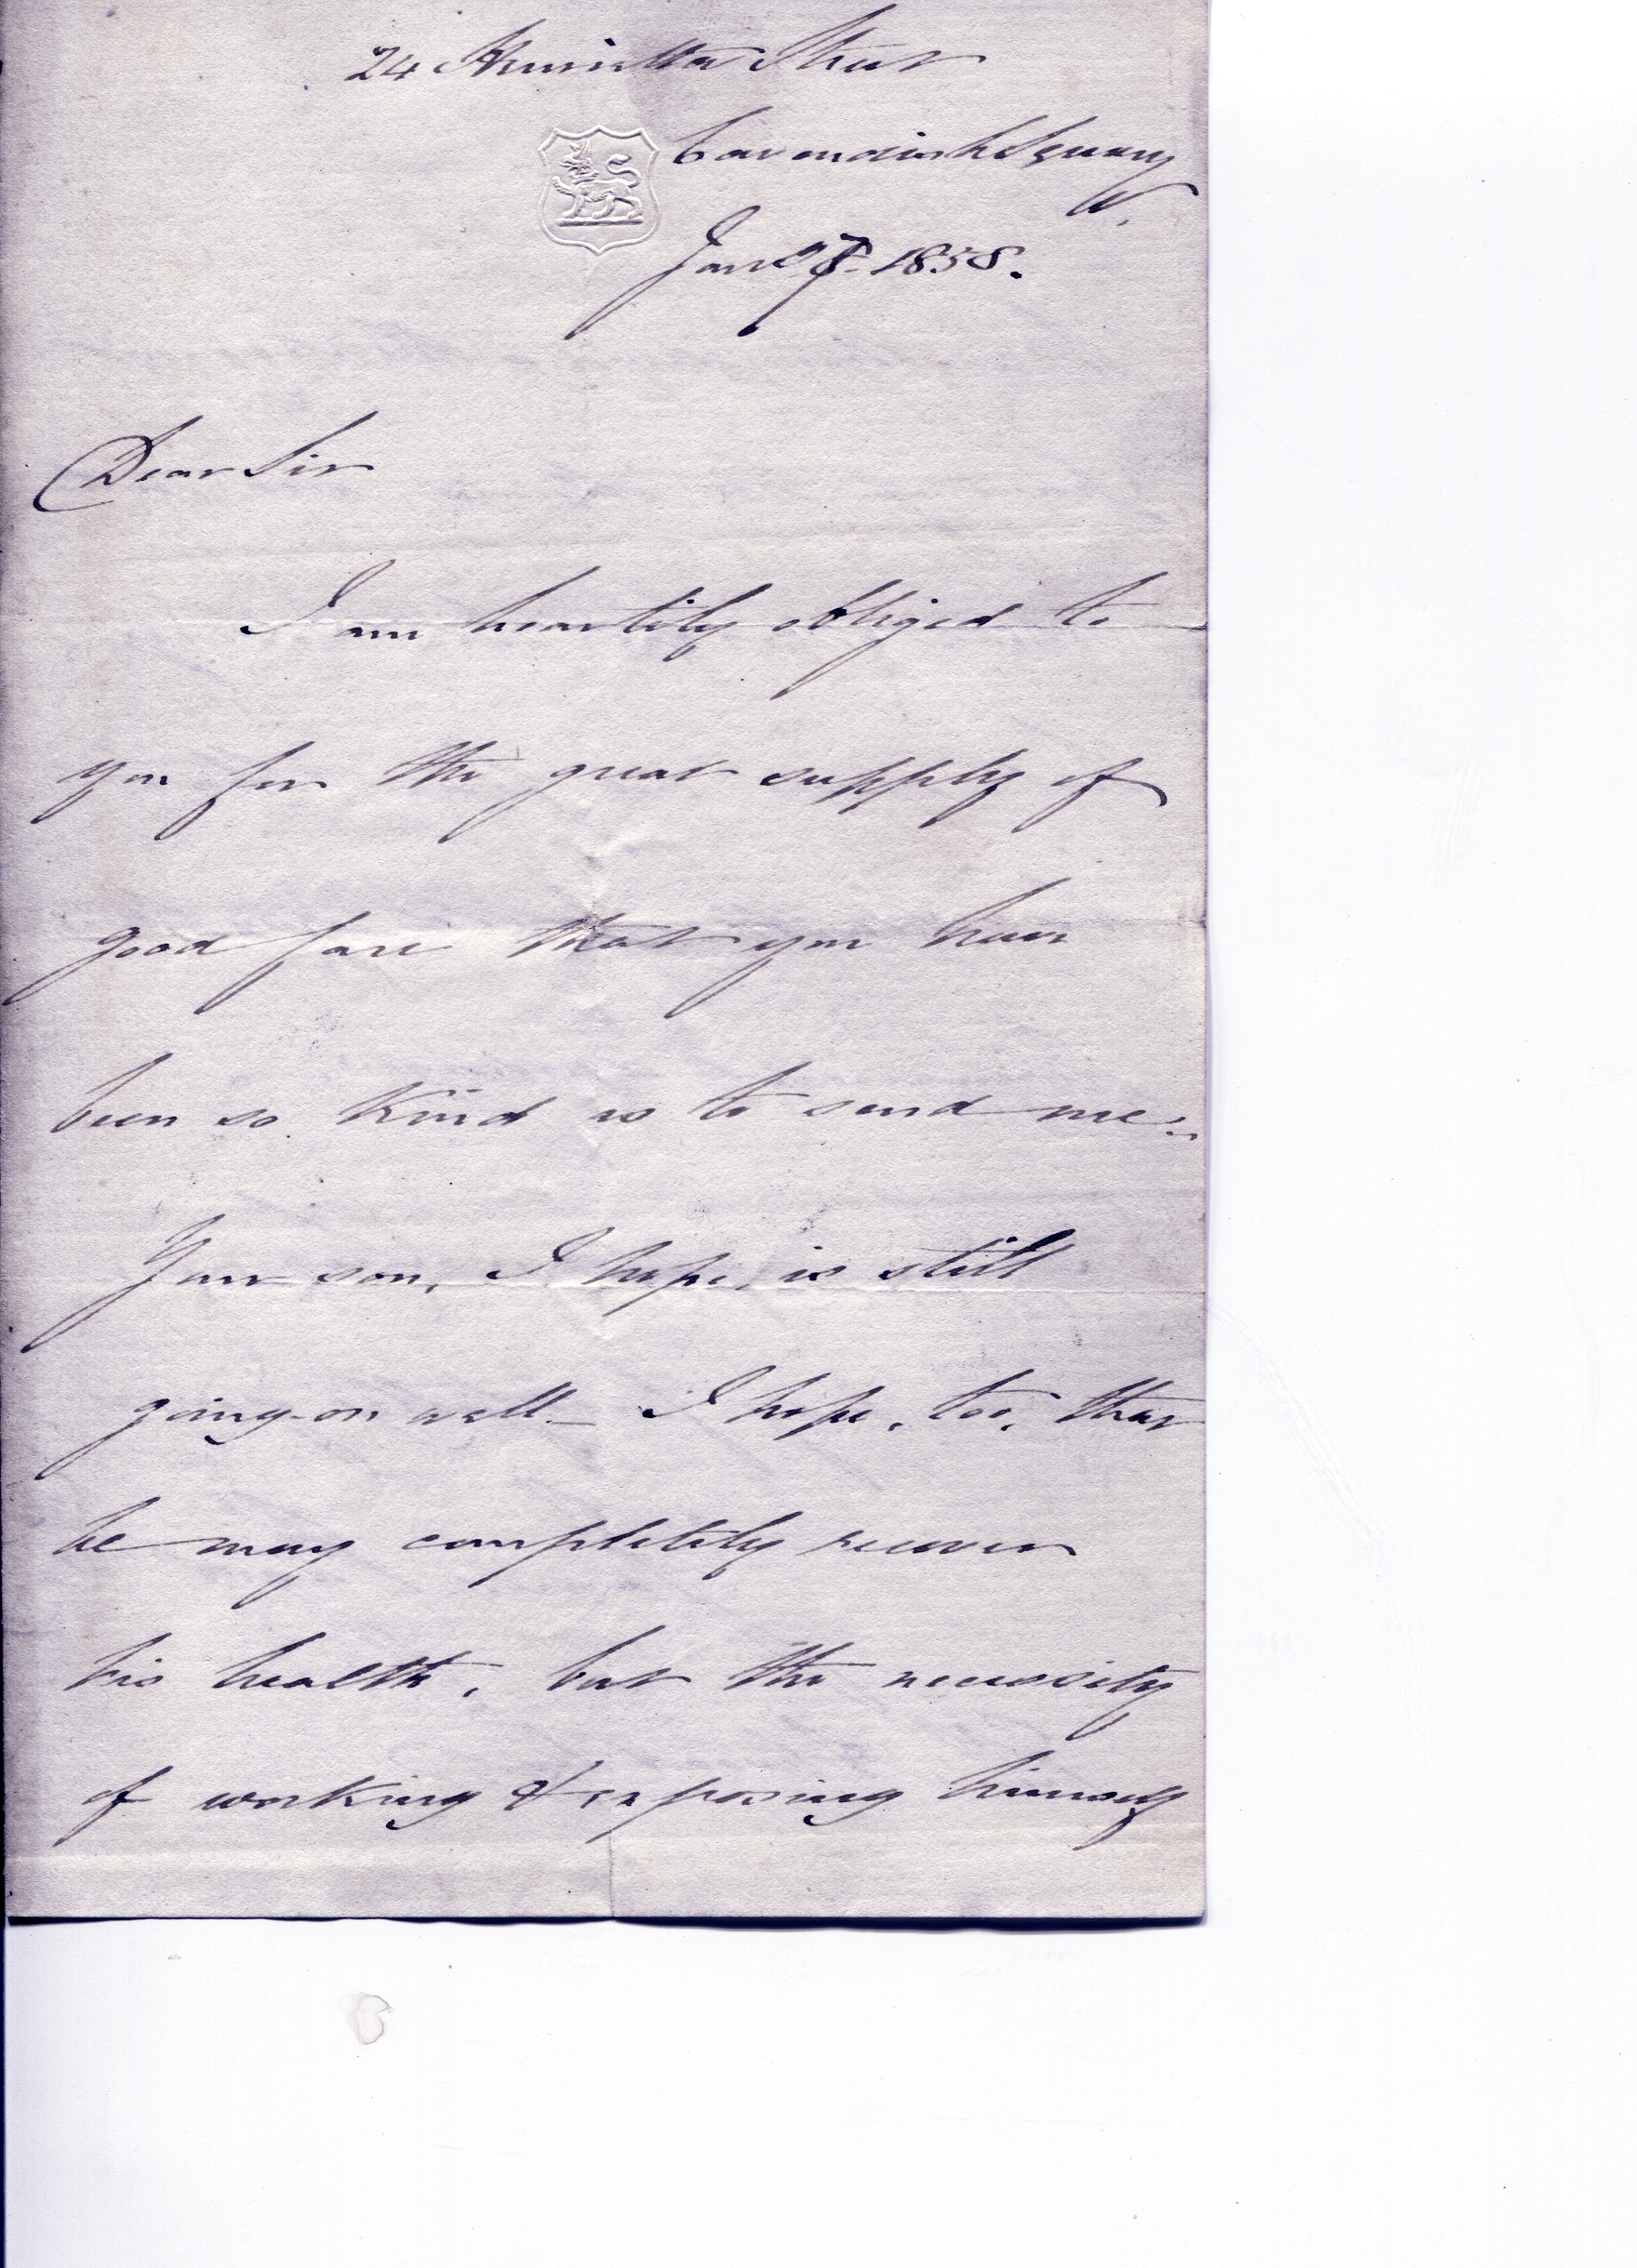 24 Henrietta Street
Cavendish Square
W.
Jany 7 1858.
Dear Sir
I am heartily obliged to
you for the great supply of
good fare that you have
been so kind as to send me.
Your son, I hope, is still
going-on well - I hope, too, that
he may completely recover
his health, but the necessity
of working & exposing himself